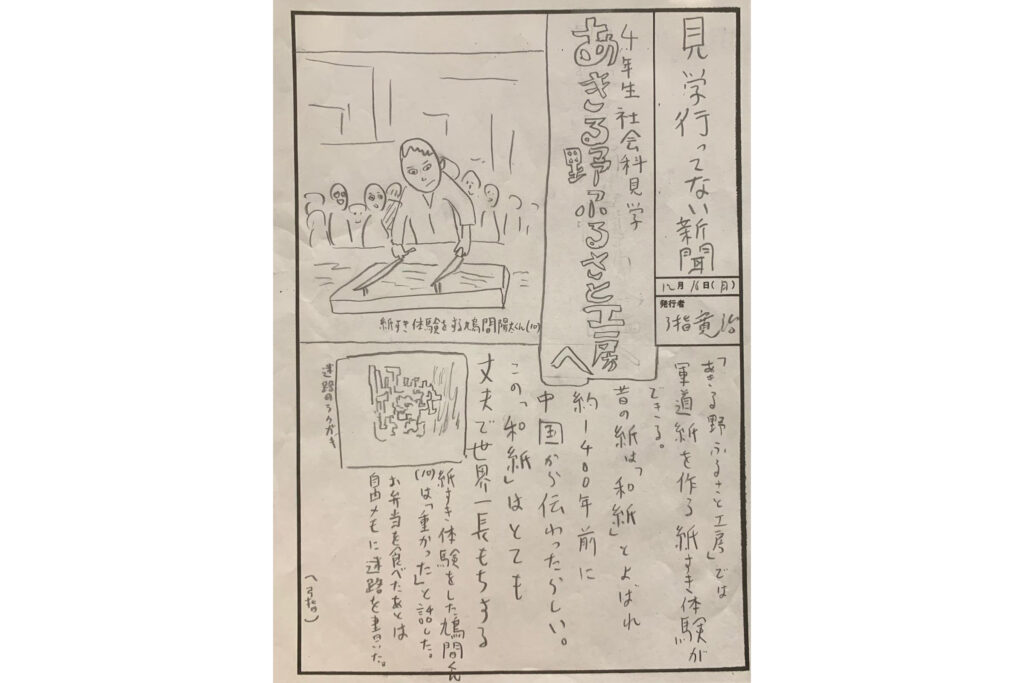 見学行ってない新聞
12月16日(月)
発行者
弓指寛治
4年生社会科見学
あきる野ふるさと工房へ
紙すき体験をする鳩間陽太くん(10)
「あきる野ふるさと工房」では
軍道紙を作る紙すき体験が
できる。
昔の紙は「和紙」とよばれ
約1400年前に
中国から伝わったらしい。
この「和紙」はとても
丈夫で世界一長もちする
紙すき体験をした鳩間くん
(10)は「重かった」と話した。
お弁当を食べたあとは
自由メモに迷路を書いた。
(弓指)
迷路のラクガキ